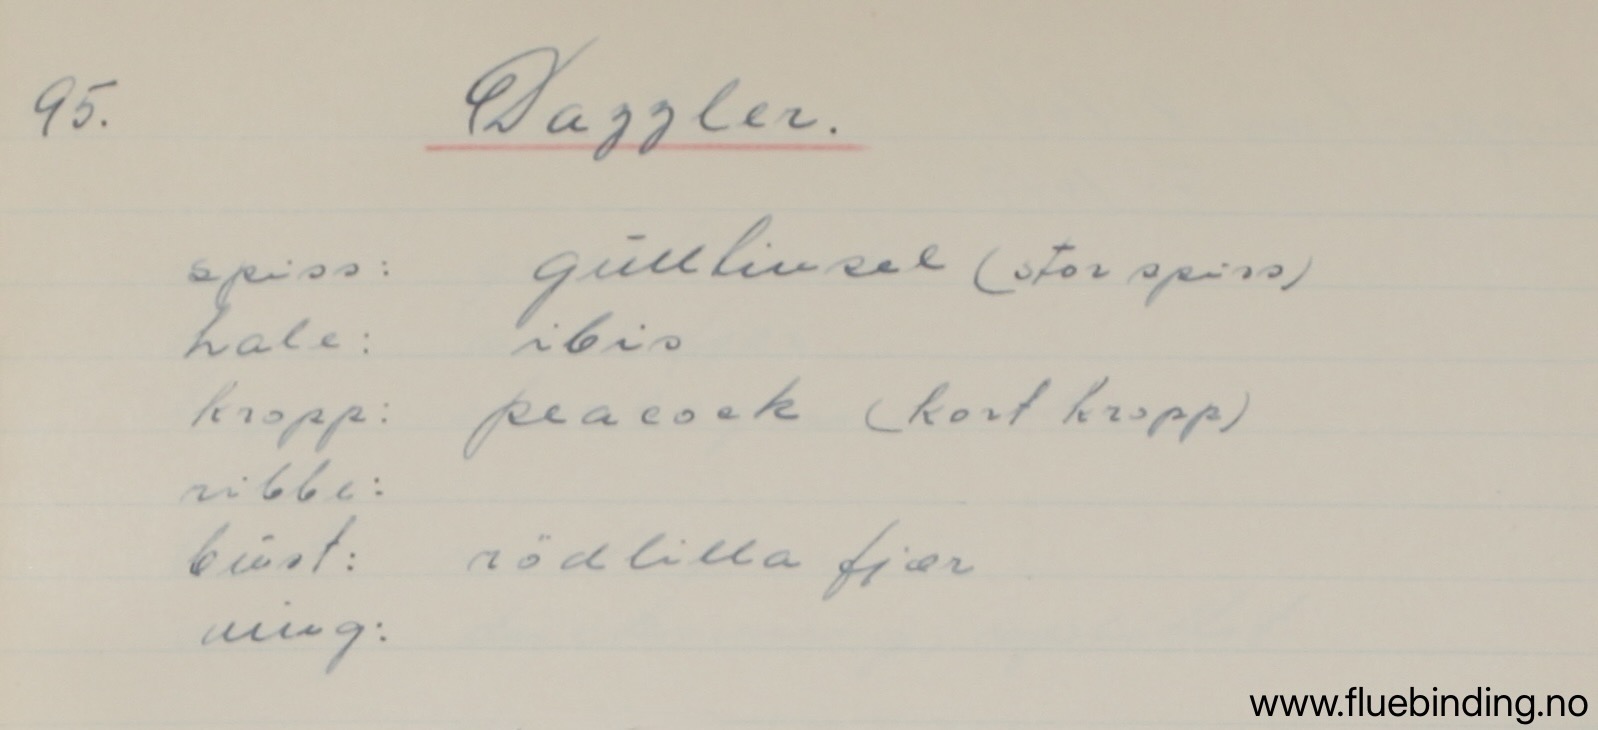 95. Dazzler.
spiss: gulltinsel (stor spiss)
hale: ibis
kropp: peacock (kort kropp)
ribbe:
bust: rödlilla fjær
ving:
www.fluebinding.no